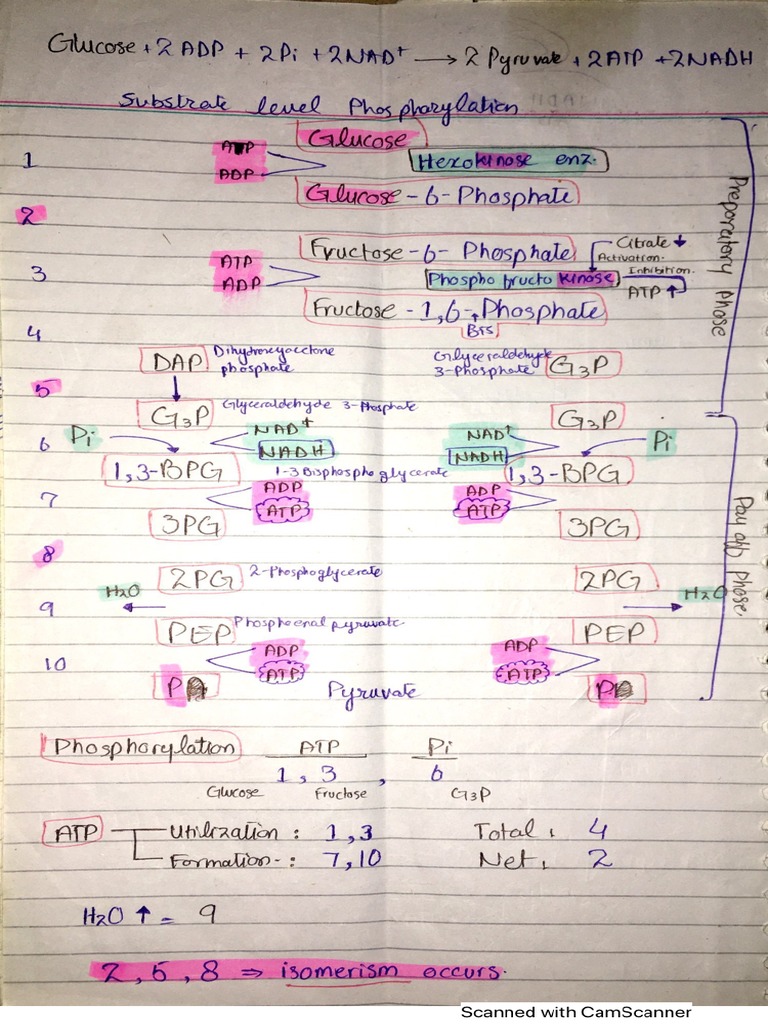 Glucose + 2 ADP + 2Pi + 2NAD⁺ → 2 Pyruvate + 2ATP + 2NADH
Substrate level Phosphorylation
Glucose
ATP
1
Hexokinase enz.
ADP
Glucose - 6 - Phosphate
2
Preparatory Phase
Fructose - 6 - Phosphate
Citrate ↓
Activation.
ATP
3
Phosphofructokinase
Inhibition.
ADP
ATP ↑
Fructose - 1,6 - Phosphate
Bis
4
DAP
Dihydroxyacetone phosphate
Glyceraldehyde 3-Phosphate
G3P
5
G3P
Glyceraldehyde 3-Phosphate
G3P
6
Pi
NAD⁺
NAD⁺
Pi
NADH
NADH
1,3-BPG
1-3 Bisphosphoglycerate
1,3-BPG
7
ADP
ADP
ATP
ATP
3PG
3PG
Pay off Phase.
8
2PG
2-Phosphoglycerate
2PG
9
H2O
H2O
PEP
Phosphoenal pyruvate
PEP
10
ADP
ADP
ATP
ATP
P
Pyruvate
P
Phosphorylation
ATP
Pi
1, 3
,
6
Glucose
Fructose
G3P
ATP
Utilization :
1,3
Total,
4
Formation- :
7,10
Net,
2
H2O ↑ = 9
2, 5, 8 ⇒ isomerism occurs.
Scanned with CamScanner